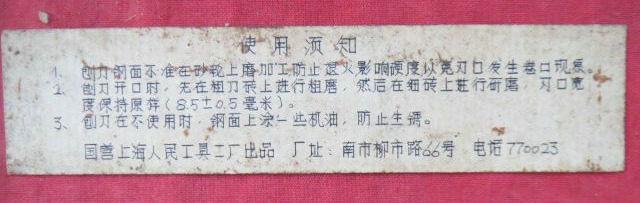 使用须知
1. 刨刃钢面不准在砂轮上磨加工防止退火影响硬度以免刃口发生卷口现象。
2. 刨刃开口时，先在粗刃砖上进行粗磨，然后在细砖上进行研磨，刃口宽
度保持原样（8.5±0.5毫米）。
3. 刨刃在不使用时，钢面上涂一些机油，防止生锈。
国营上海人民工具工厂出品 厂址：南市柳市路66号 电话770023